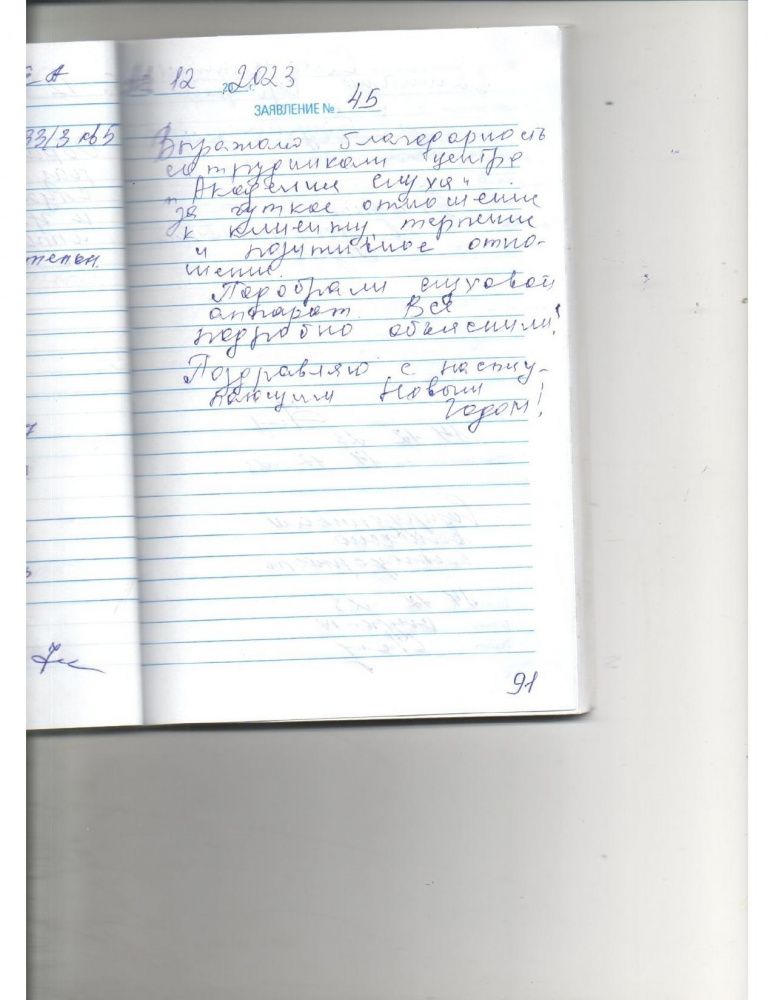 12 2023
ЗАЯВЛЕНИЕ № 45
Выражаю благодарность
сотрудникам центра
„Академия слуха"
за чуткое отношение
к клиенту, терпение
и позитивное отно-
шение.
Подобрали слуховой
аппарат. Всё
подробно объяснили!
Поздравляю с насту-
пающим Новым
Годом!
91
33/3 кв 5